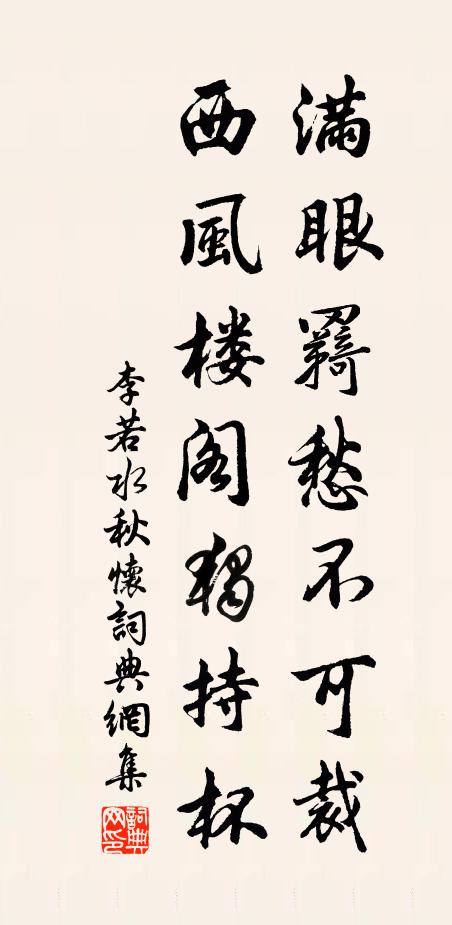 滿眼羈愁不可裁
西風楼阁獨持杯
李若水秋懷詞典網集
詞典
网印